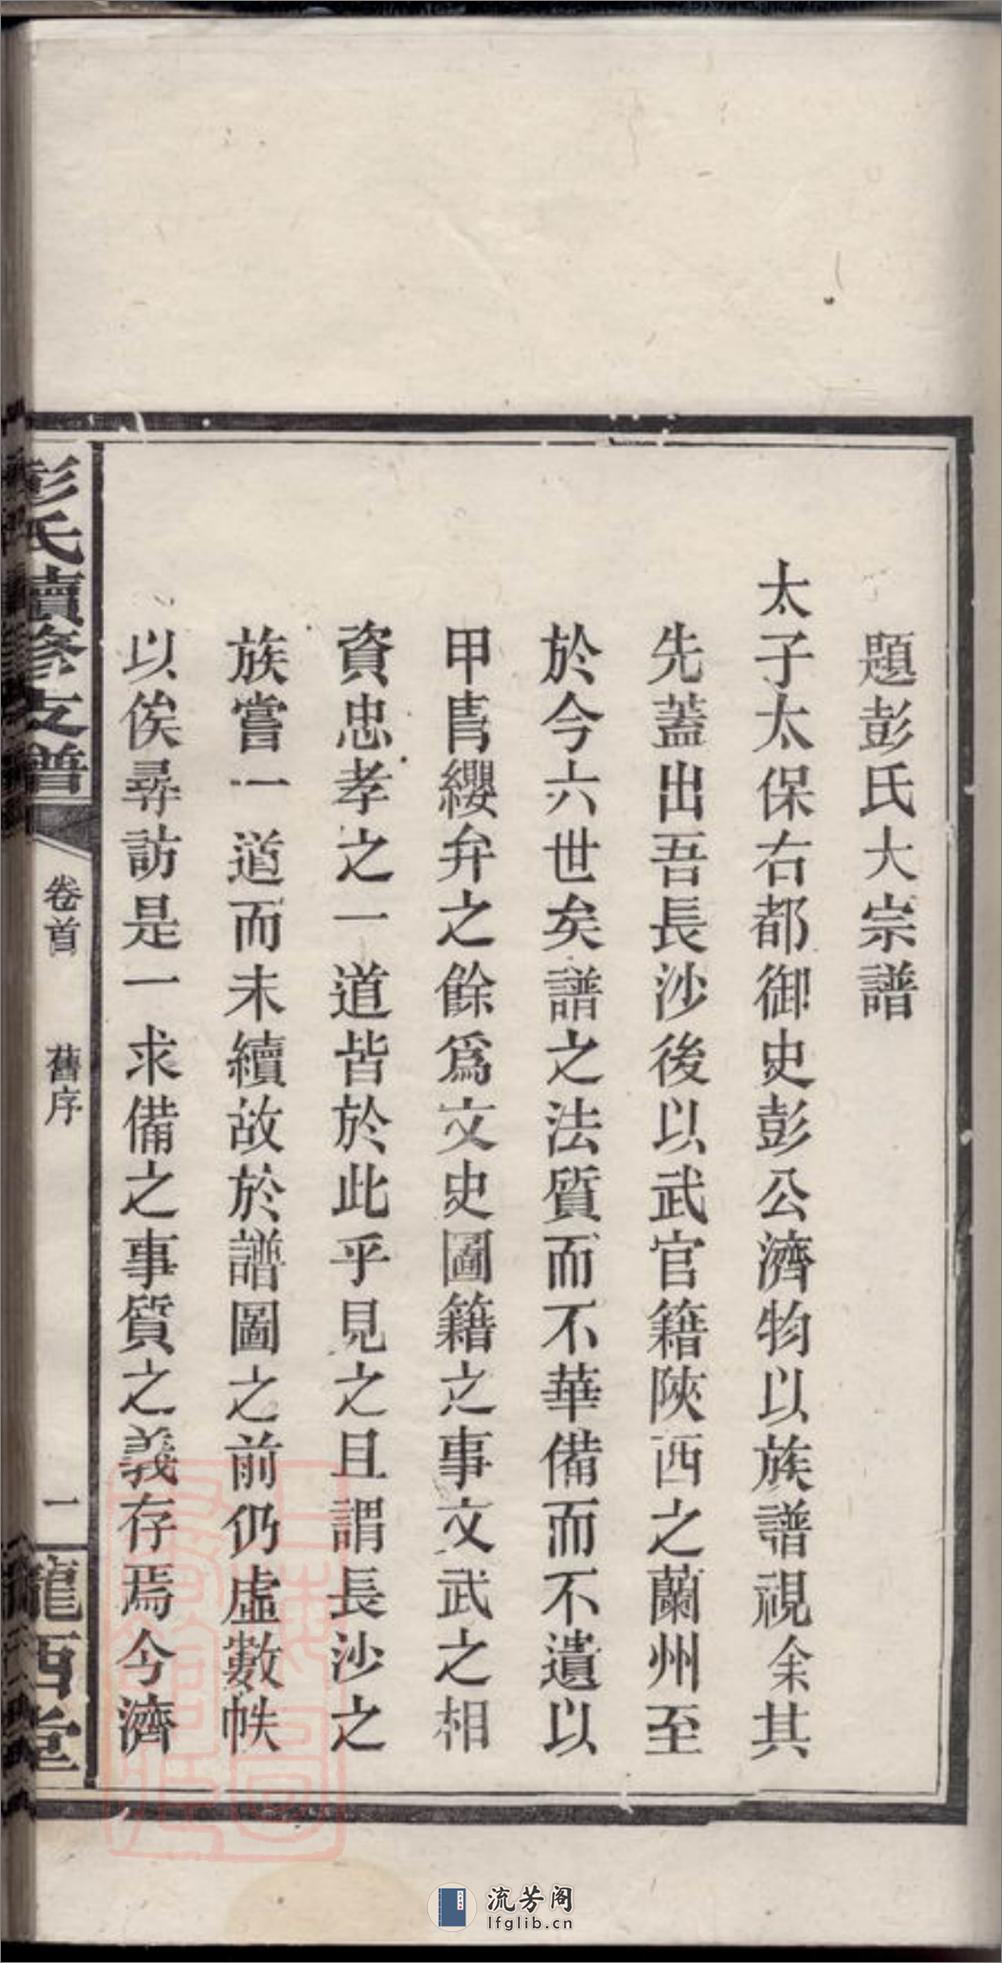 題彭氏大宗譜
太子太保右都御史彭公濟物以族譜視余其
先蓋出吾長沙後以武官籍陝西之蘭州至
於今六世矣譜之法質而不華備而不遺以
甲冑纓弁之餘爲文史圖籍之事文武之相
資忠孝之一道皆於此乎見之且謂長沙之
族嘗一道而未續故於譜圖之前仍虛數帙
以俟尋訪是一求備之事質之義存焉今濟
彭氏續修支譜
卷首
舊序
一
隴西堂
流芳阁
lfglib.cn